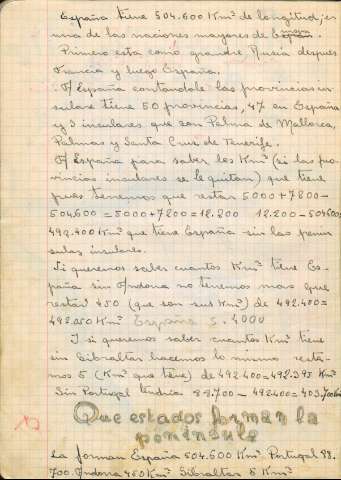 España tiene 504.600 Km² de longitud, es
una de las naciones mayores de
Primero esta como grande Rusia despues
Francia y luego España.
A España contandole las provincias in-
sulare tiene 50 provincias, 47 en España
y 3 inculares que son Palma de Mallorca,
Palmas y Santa Cruz de Tenerife.
A España para saber los Km² (si las pro-
vincias insulares se le quitan) que tiene
pues tenemos que restar 5000+7200-
504600 = 5000+7200=12.200 12.200-504600=
492.400 Km² que tiene España sin las penin
sulas insulares.
Si queremos saber cuantos Km² tiene Es-
paña sin Andorra no tenemos mas que
restar 450 (que son sus Km²) de 492.400=
España
I si queremos saber cuantos Km² tiene
sin Gibraltar hacemos lo mismo resta-
mos 5 (Km² que tiene) de 492400=492.395 Km²
Sin Portugal tendria 88.700-492400=403.700
Que estados forman la
peninsula
La forman España 504.600 Km² Portugal 88.
700. Andorra 450 Km² Gibraltar 5 Km²